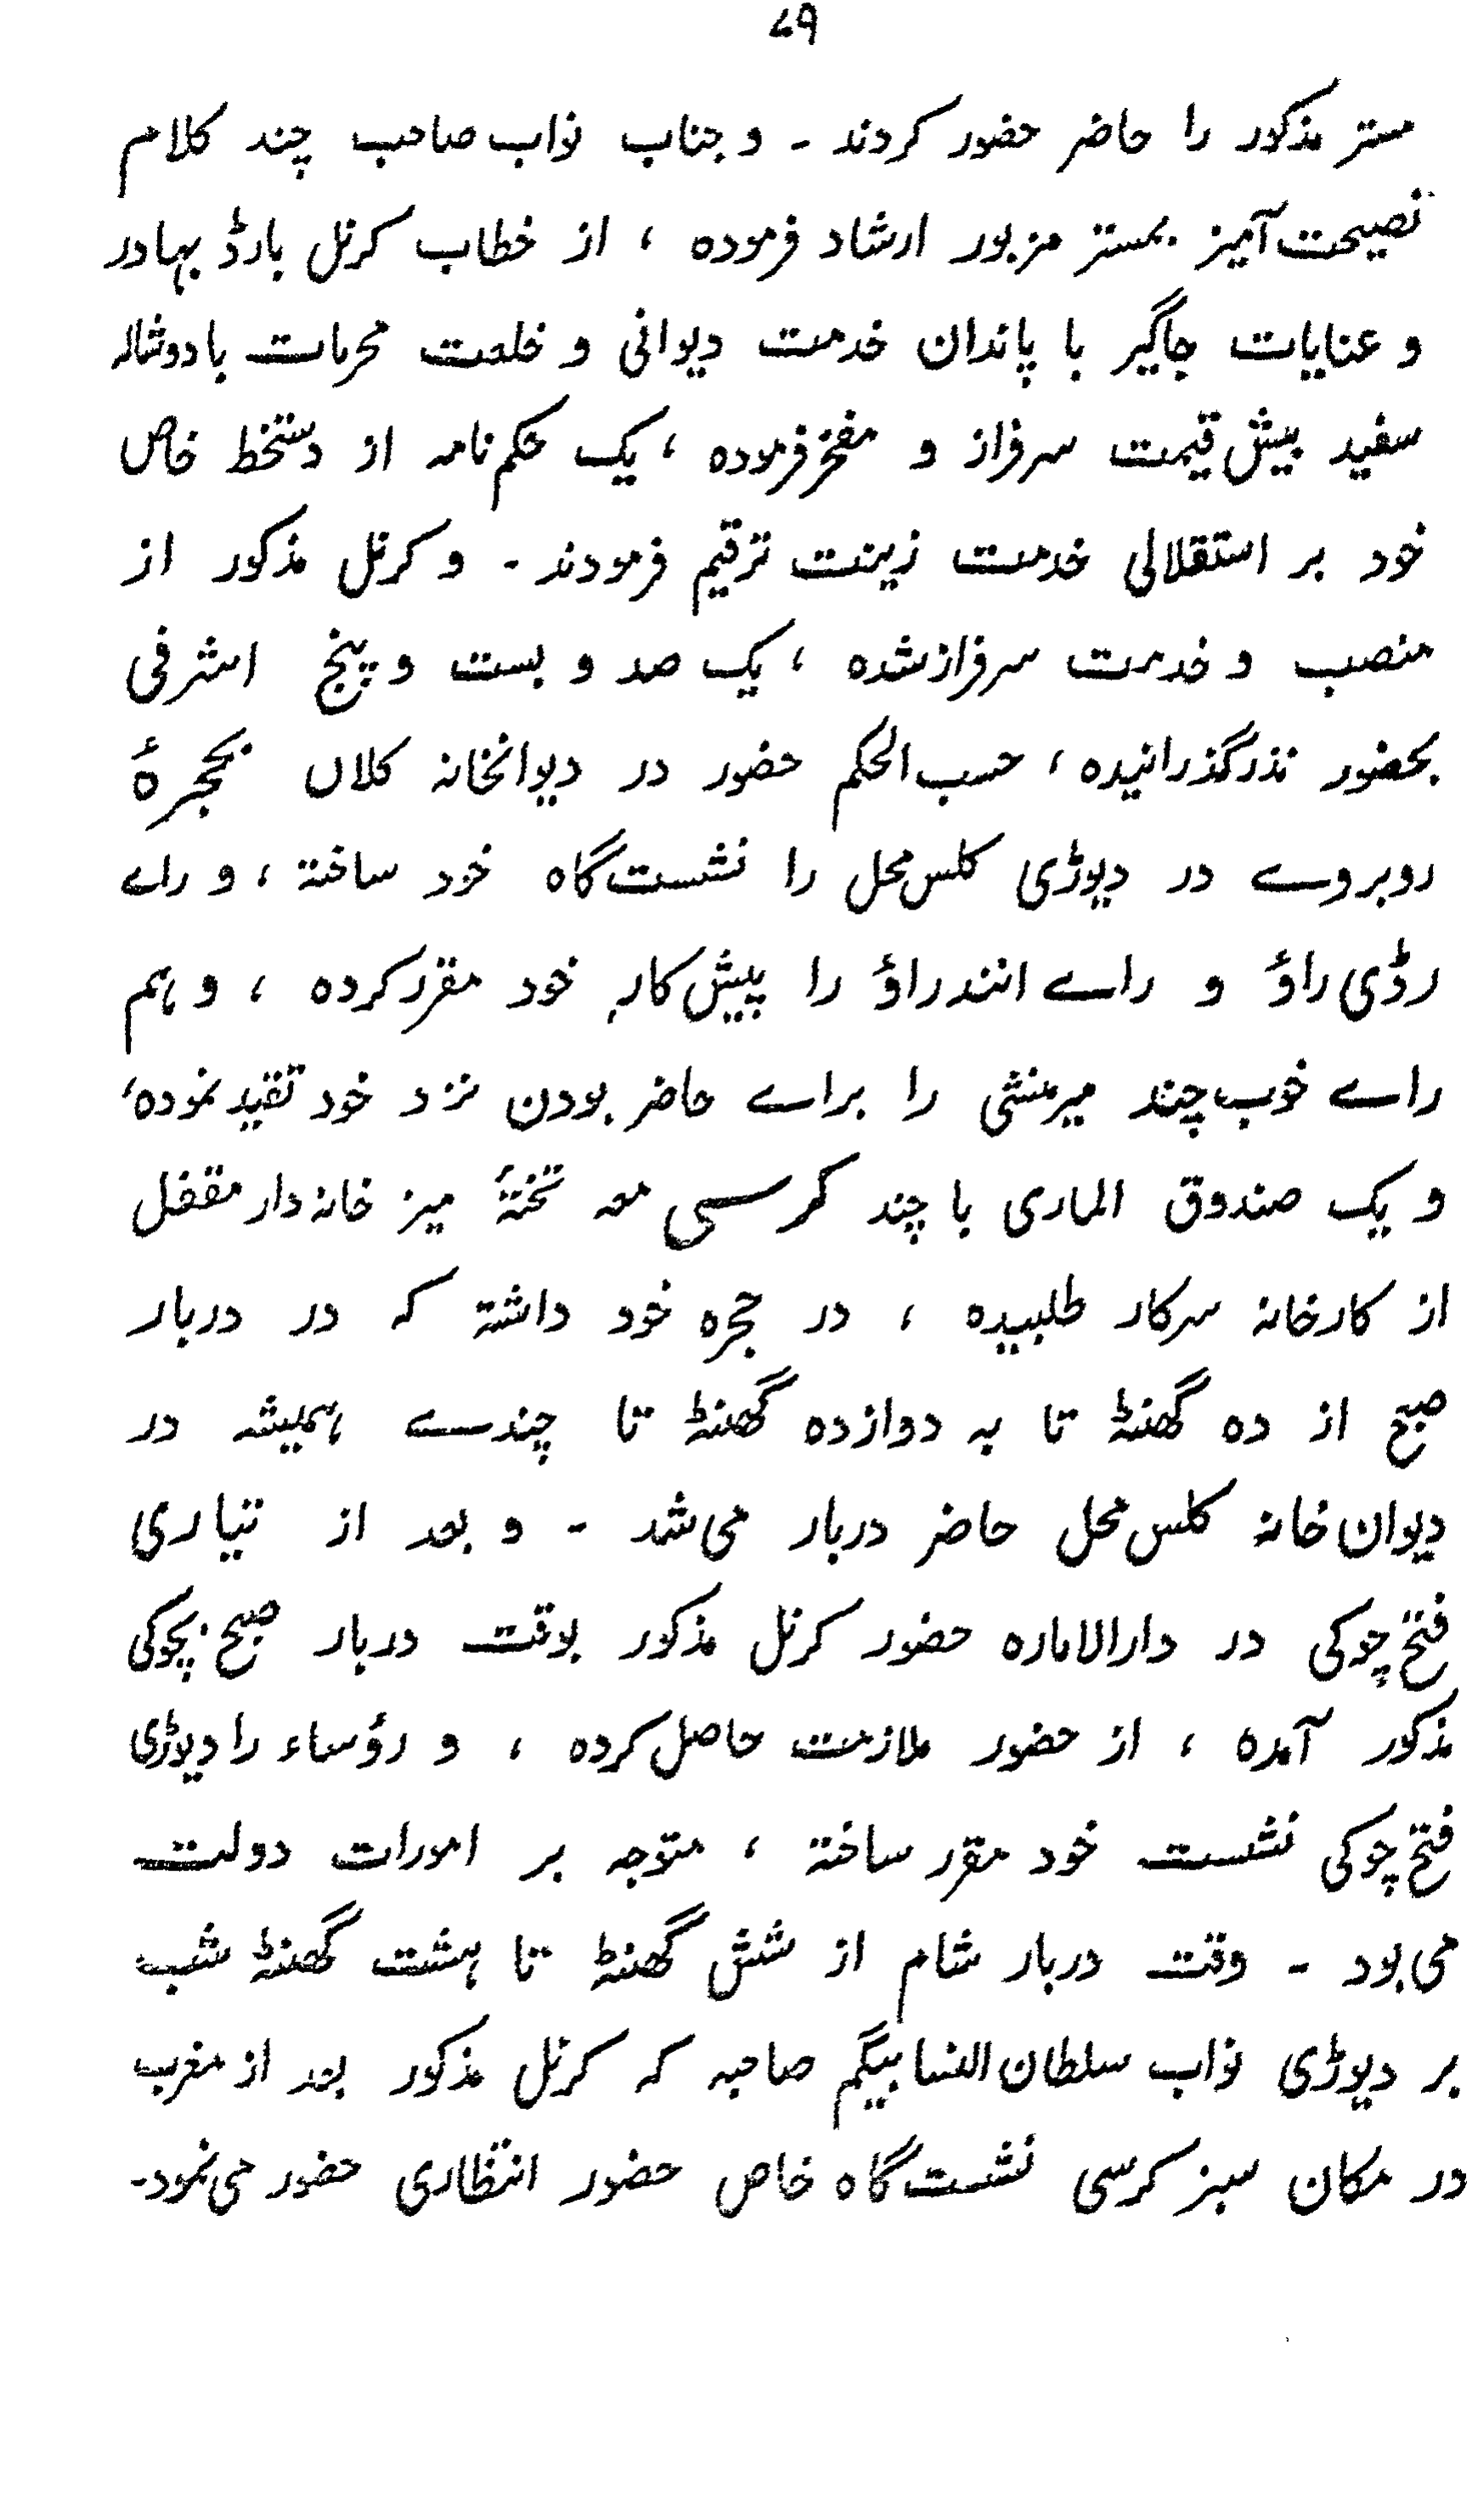 ۷۹
مستر مذکور را حاضر حضور کردند ۔ و جناب نواب صاحب چند کلام
نصیحت آمیز بمستر مزبور ارشاد فرمودہ ، از خطاب کرنل بارڈ بہادر
و عنایات جاگیر با پاندان خدمت دیوانی و خلعت محرمات با دوشالہ
سفید بیش قیمت سرفراز و مفتخر فرمودہ ، یک حکم نامہ از دستخط خاص
خود بر استقلالی خدمت زینت ترقیم فرمودند ۔ و کرنل مذکور از
منصب و خدمت سرفراز شدہ ، یک صد و بست و پنج اشرفی
بحضور نذر گذرانیدہ ، حسب الحکم حضور در دیوانخانہ کلاں بحجرۂ
روبروے در دیوڑی کلس محل را نشست گاہ خود ساختہ ، و راے
رڈی راؤ و راے انندراؤ را پیش کار خود مقرر کردہ ، و ہم
راے خوب چند میر منشی را براے حاضر بودن نزد خود تقید نمودہ ،
و یک صندوق الماری با چند کرسی معہ تختۂ میز خانہ دار مقفل
از کارخانہ سرکار طلبیدہ ، در حجرہ خود داشتہ کہ در دربار
صبح از دہ گھنٹہ تا بہ دوازدہ گھنٹہ تا چندے ہمیشہ در
دیوان خانہ کلس محل حاضر دربار می شد ۔ و بعد از تیاری
فتح چوکی در دارالامارہ حضور کرنل مذکور بوقت دربار صبح بچوکی
مذکور آمدہ ، از حضور ملازمت حاصل کردہ ، و رؤساء را دیوڑی
فتح چوکی نشست خود مقرر ساختہ ، متوجہ بر امورات دولت
می بود ۔ وقت دربار شام از شش گھنٹہ تا ہشت گھنٹہ شب
بر دیوڑی نواب سلطان النسا بیگم صاحبہ کہ کرنل مذکور بعد از مغرب
در مکان سبز کرسی نشست گاہ خاص حضور انتظاری حضور می نمود۔